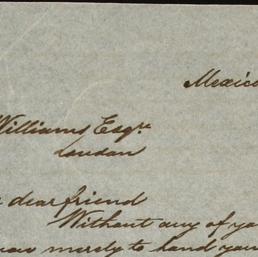 Mexico
Williams Esqre.
London
dear friend
Without any of yo
merely to hand you